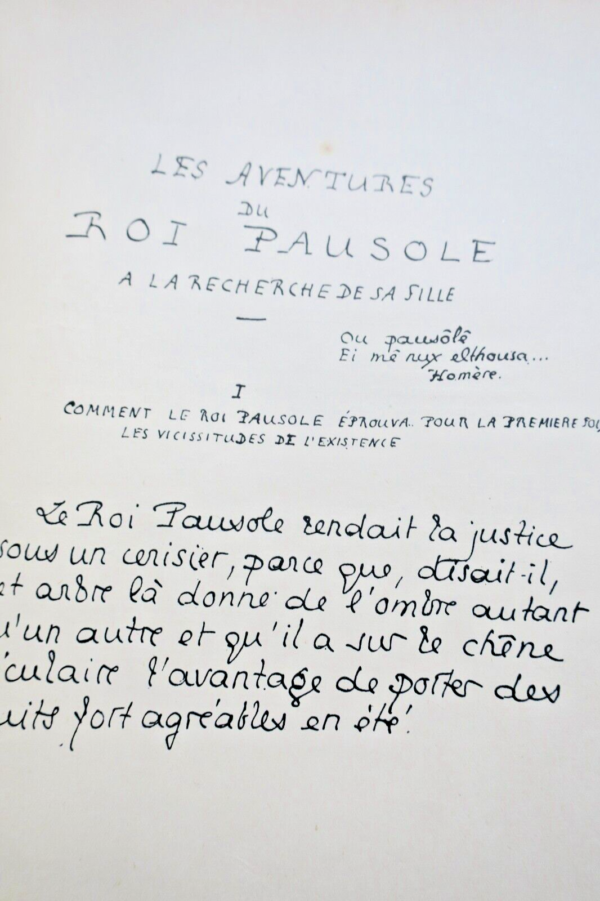 LES AVENTURES
DU
ROI PAUSOLE
A LA RECHERCHE DE SA FILLE
Ou pausôlê
Ei mê nux elthousa...
Homère.
I
COMMENT LE ROI PAUSOLE ÉPROUVA POUR LA PREMIERE FOIS
LES VICISSITUDES DE L'EXISTENCE
Le Roi Pausole rendait la justice
sous un cerisier, parce que, disait-il,
et arbre là donne de l'ombre autant
u'un autre et qu'il a sur le chêne
culaire l'avantage de porter des
uits fort agréables en été.